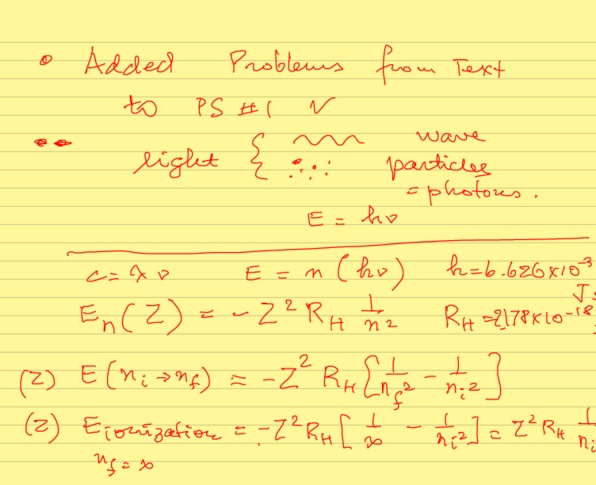 • Added Problems from Text
to PS #1 ✓
light { wave
particles
= photons.
E = hν
c = λν E = n (hν) h = 6.626×10⁻³
Eₙ(Z) = -Z² R_H 1/n² R_H = 2.178×10⁻¹⁸ J
(Z) E(nᵢ→n_f) = -Z² R_H [1/n_f² - 1/nᵢ²]
(Z) E ionization = -Z² R_H [1/∞ - 1/nᵢ²] = Z² R_H 1/nᵢ
n_f = ∞